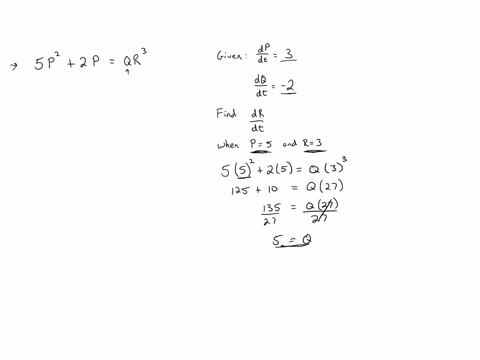 → 5P² + 2P = QR³
↑
Given: dP/dt = 3
dQ/dt = -2
Find dR/dt
when P=5 and R=3
5(5)² + 2(5) = Q(3)³
125 + 10 = Q(27)
135/27 = Q(27)/27
5 = Q